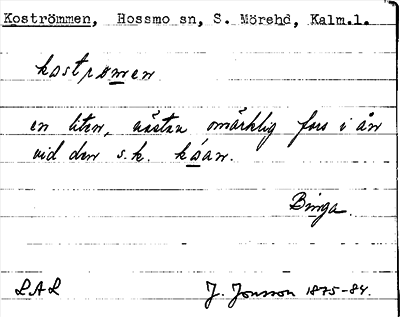 Koströmmen, Hossmo sn, S. Mörehd, Kalm.l.
kostrømen
en liten, nästan omärklig fors i ån
vid den s.k. kòan.
Binga
LAL J. Jonsson 1875-84.